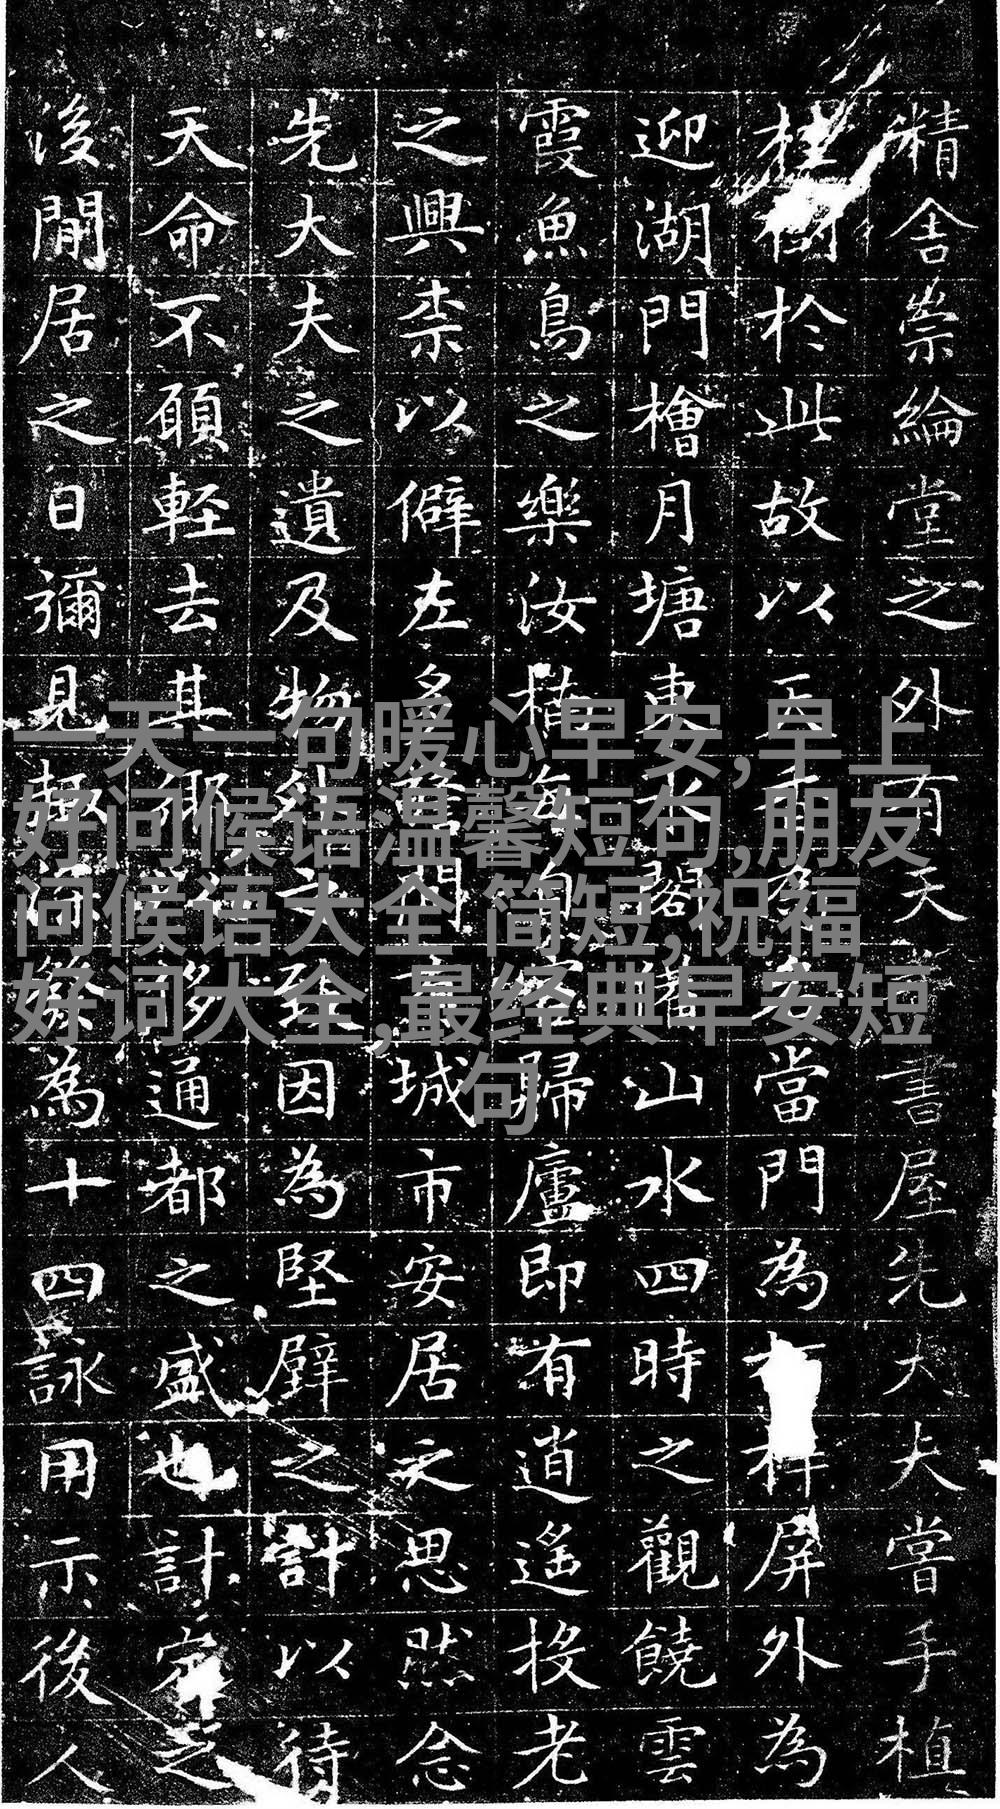 精舍崇綸堂之外有天書屋先大夫嘗手植
桂樹於此故以天香名安當門為屏外為
迎湖門檜月塘東水閣山水四時之觀饒雲
霞魚鳥之樂汝楠每自歸廬即有逍遙投老
之興柰以僻左多門城市安居之思然念
先大夫之遺及物外之致因為堅壁之計以待
天命不願輕去其鄉移通都之盛也計定之
後閒居之日彌見趣發為十四詠用示後人
一天一句暖心早安,早上
好问候语温馨短句,朋友
问候语大全 简短,祝福
好词大全,最经典早安短
句